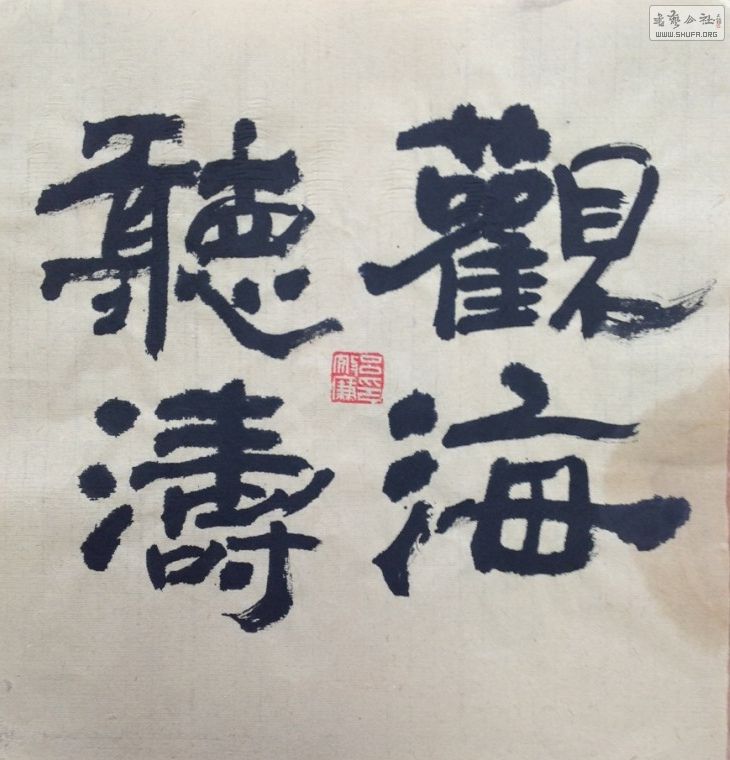 觀海
聽濤
書藝公社
WWW.SHUFA.ORG